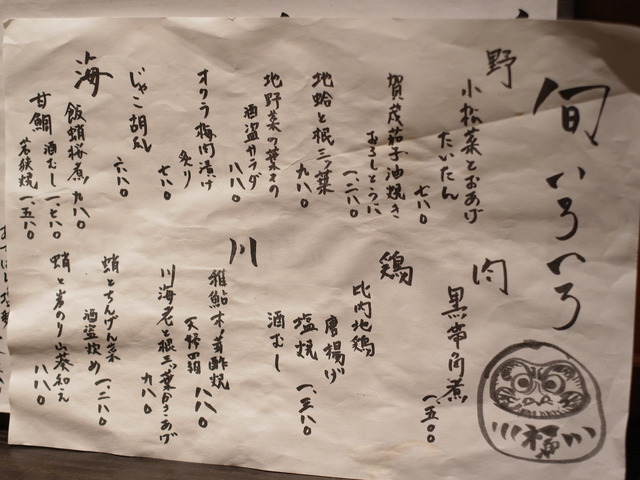 旬いろいろ
野
小松菜とおあげ
たいたん
七八〇
賀茂茄子油焼き
おろしとうに
一、二八〇
地蛤と根三つ葉
九八〇
地野菜の葉その
酒盗サラダ
八八〇
オクラ梅肉漬け
炙り
七八〇
じゃこ胡瓜
六八〇
海
飯蛸桜煮
九八〇
甘鯛
酒むし
一、七八〇
若狭焼
一、五八〇
肉
黒帯角煮
一、五〇〇
鶏
比内地鶏
唐揚げ
塩焼
酒むし
一、三八〇
川
稚鮎木ノ芽酢焼
天婦羅
八八〇
川海老と根三つ葉かきあげ
九八〇
蛸とちんげん菜
酒盗炒め
一、二八〇
蛸と青のり山葵和え
八八〇
梅